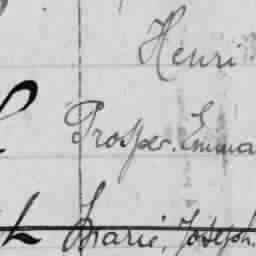 Henri
Prosper. Emma
Marie, Joseph.